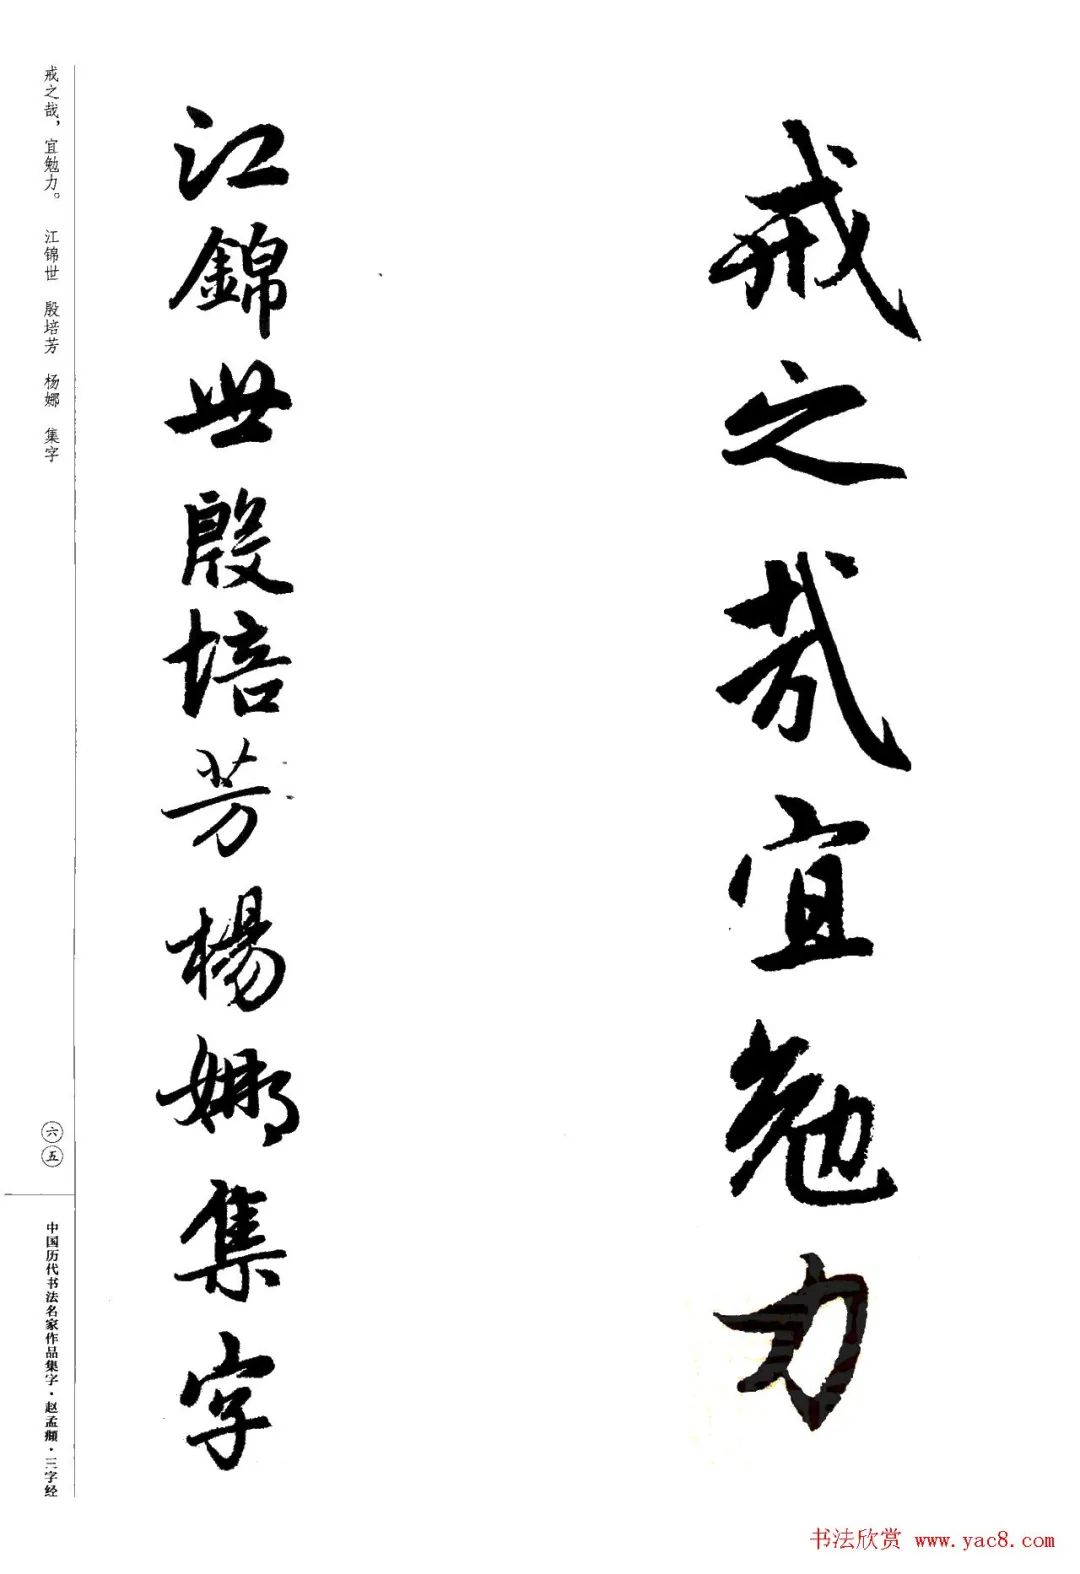 戒之哉宜勉力
江錦世殷培芳楊娜集字
戒之哉，宜勉力。 江锦世 殷培芳 杨娜 集字
六五
中国历代书法名家作品集字·赵孟頫·三字经
书法欣赏 www.yac8.com